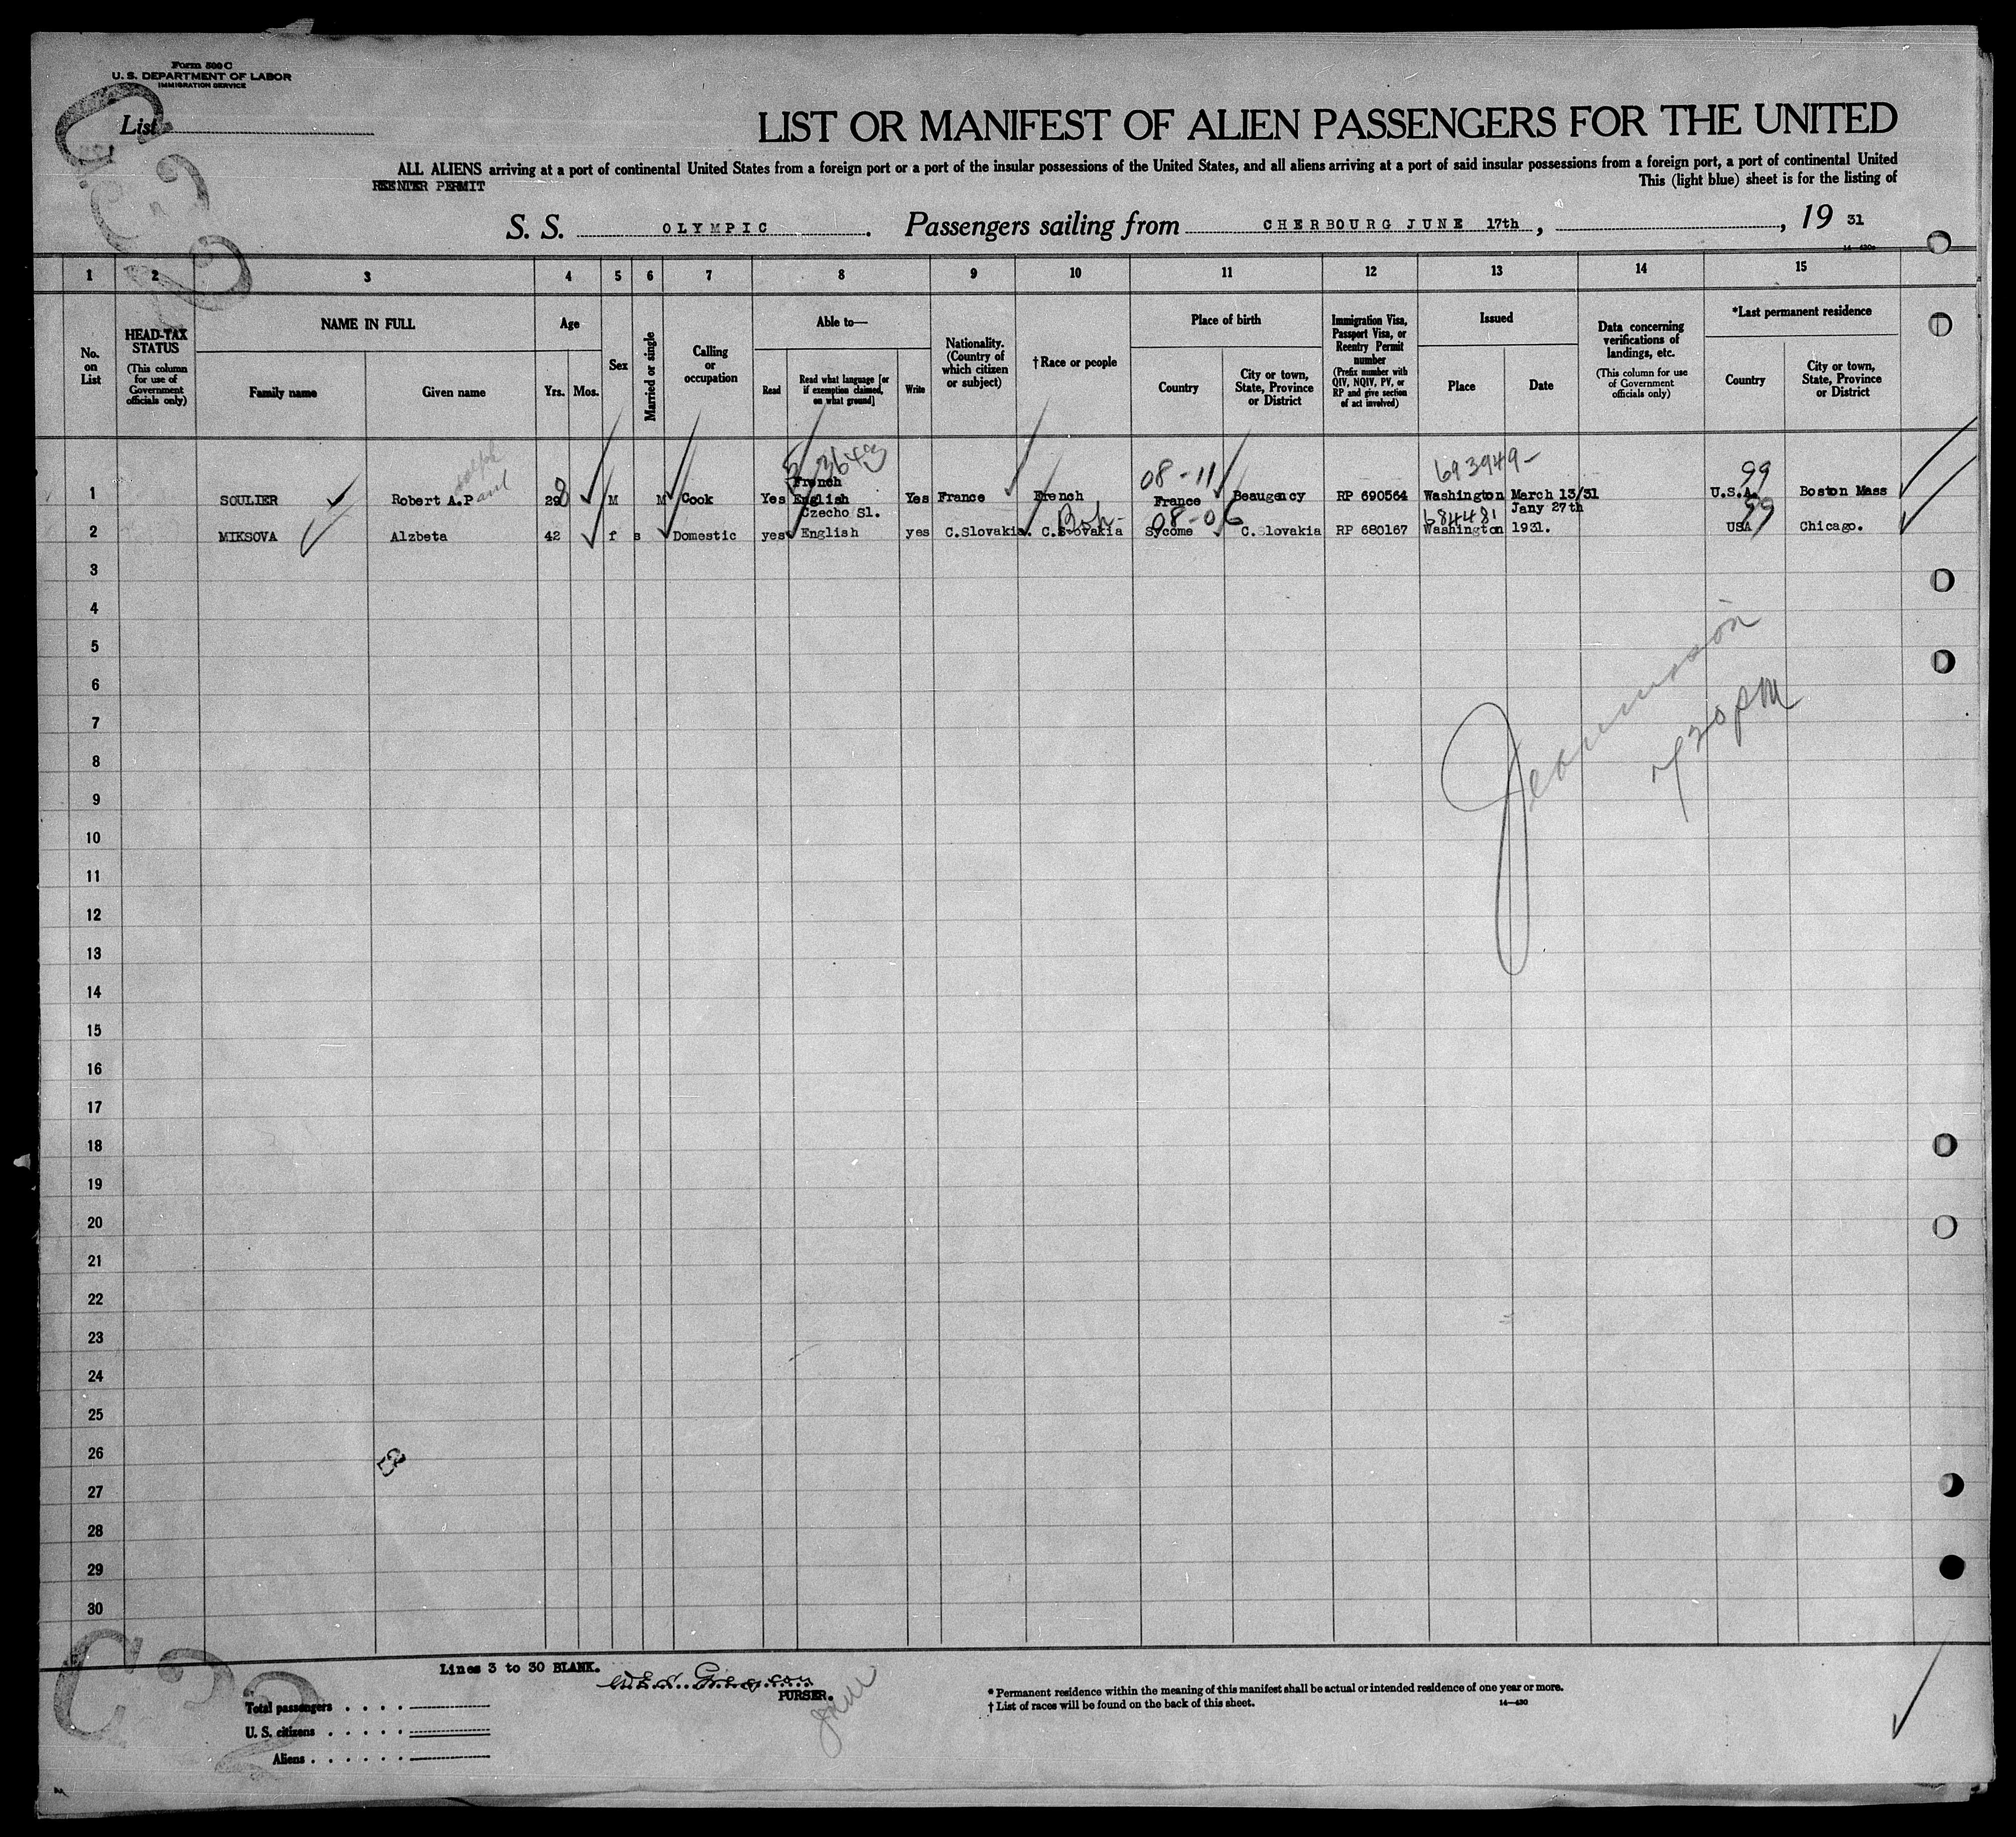 Form 500 C
U. S. DEPARTMENT OF LABOR
IMMIGRATION SERVICE
List
LIST OR MANIFEST OF ALIEN PASSENGERS FOR THE UNITED
ALL ALIENS arriving at a port of continental United States from a foreign port or a port of the insular possessions of the United States, and all aliens arriving at a port of said insular possessions from a foreign port, a port of continental United
REENTER PERMIT This (light blue) sheet is for the listing of
S. S. OLYMPIC. Passengers sailing from CHERBOURG JUNE 17th, , 19 31
1 2 3 4 5 6 7 8 9 10 11 12 13 14 15
No. on List
HEAD-TAX STATUS
(This column for use of Government officials only)
NAME IN FULL
Family name
Given name
Age
Yrs. Mos.
Sex
Married or single
Calling or occupation
Able to—
Read
Read what language [or if exemption claimed, on what ground]
Write
Nationality. (Country of which citizen or subject)
† Race or people
Place of birth
Country
City or town, State, Province or District
Immigration Visa, Passport Visa, or Reentry Permit number
(Prefix number with QIV, NQIV, PV, or RP and give section of act involved)
Issued
Place
Date
Data concerning verifications of landings, etc.
(This column for use of Government officials only)
*Last permanent residence
Country
City or town, State, Province or District
3643
08-11
693949-
99
French
1 SOULIER Robert A. Paul 29 M M Cook Yes English Yes France French France Beaugency RP 690564 Washington March 13/31 U.S.A. Boston Mass
Czecho Sl. Boh- 08-06 684481 Jany 27th 99
2 MIKSOVA Alzbeta 42 f s Domestic yes English yes C.Slovakia. C.Slovakia Sycome C.Slovakia RP 680167 Washington 1931. USA Chicago.
3
4
5
6
7
8
9
10
11
12
13
14
15
16
17
18
19
20
21
22
23
24
25
26
27
28
29
30
720 PM
Lines 3 to 30 BLANK.
PURSER.
Total passengers
U. S. citizens
Aliens
* Permanent residence within the meaning of this manifest shall be actual or intended residence of one year or more.
† List of races will be found on the back of this sheet.
14—430